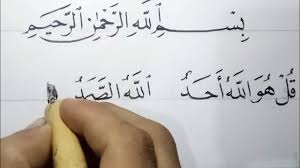 بِسْمِ اللَّهِ الرَّحْمٰنِ الرَّحِيْمِ
قُلْ هُوَ اللَّهُ أَحَدٌ اللَّهُ الصَّمَدُ